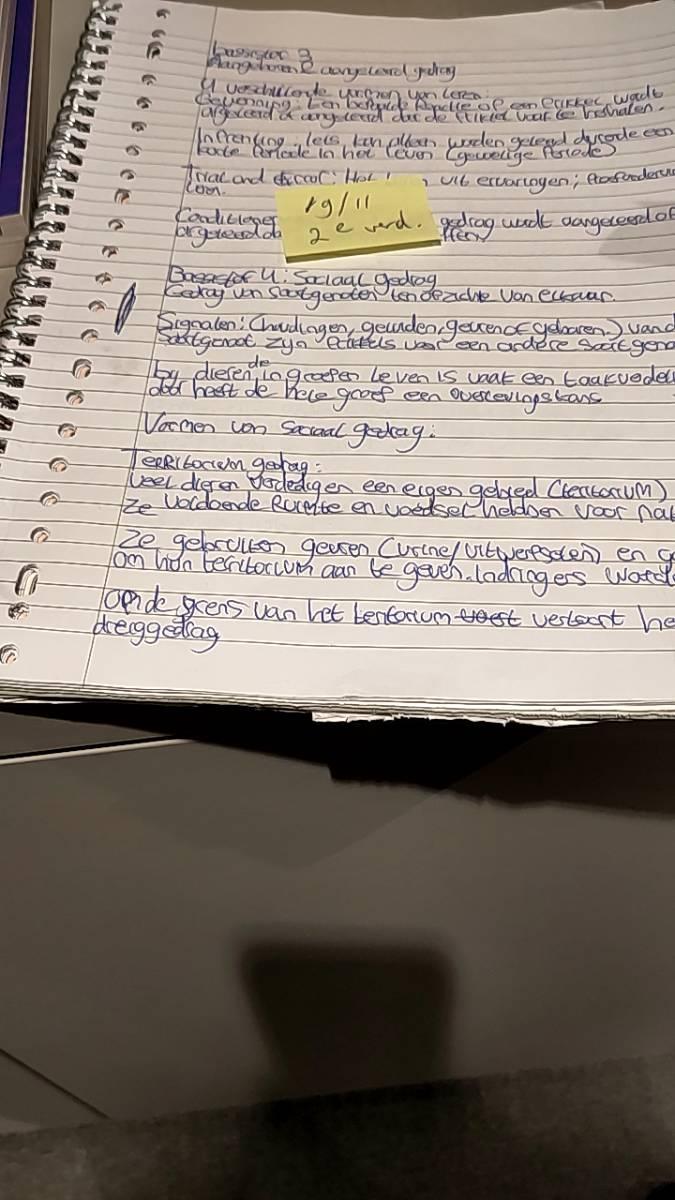 basisstof 3
Aangeboren & aangeleerd gedrag
4 verschillende vormen van leren:
Gewenning: Een bepaalde Reactie of een prikkel wordt
afgeleerd of aangeleerd dat de prikkel vaak te herhalen.
Inprenting: Iets kan alleen worden geleerd durende een
korte Periode in het leven (gevoelige Periode)
Trial and error: Het uit ervaringen;
19/11
2e verd.
gedrag wordt aangeleerd of
afgeleerd do
Basisstof 4: Sociaal gedrag
Gedrag van soortgenoten ten opzichte van elkaar.
Signalen: (houdingen, geluiden, geuren of gebaren.) van d
soortgenoot zijn prikkels voor een andere soortgeno
by dieren de in groepen leven is vaak een taakverdeli
door heeft de hele groep een overlevingskans
Vormen van sociaal gedrag:
Territorium gedrag:
Veel dieren verdedigen een eigen gebied (territorium)
ze voldoende Ruimte en voedsel hebben voor na
Ze gebruiken geuren (urine/uitwerpselen) en g
om hun territorium aan te geven. Indringers word
Op de grens van het territorium vertoont he
dreiggedrag